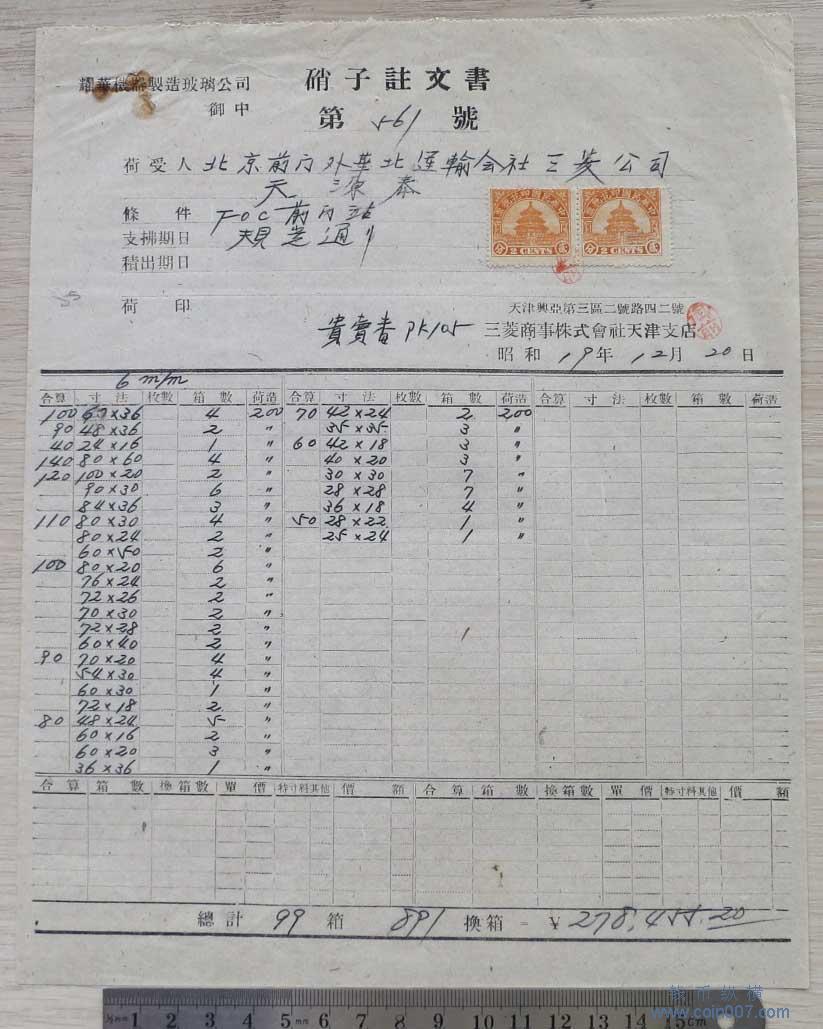 耀華機器製造玻璃公司
御中
硝子註文書
第 561 號
荷受人 北京前門外華北運輸会社三菱公司
天源泰
條件 FOC前門站
支拂期日 規定通リ
積出期日
荷印
2 CENTS 2 CENTS
天津興亞第三區二號路四二號
貴賣書 PK105 三菱商事株式會社天津支店
昭和 19年 12月 20日
6 m/m
合算 寸法 枚數 箱數 荷造 合算 寸法 枚數 箱數 荷造 合算 寸法 枚數 箱數 荷造
100 67×36 4 200 70 42×24 2 200
90 48×36 2 〃 35×35 3 〃
40 24×16 1 〃 60 42×18 3 〃
140 80×60 4 〃 40×20 3 〃
120 100×20 2 〃 30×30 7 〃
90×30 6 〃 28×28 7 〃
84×36 3 〃 36×18 4 〃
110 80×30 4 〃 50 28×22 1 〃
80×24 2 〃 25×24 1 〃
60×50 2 〃
100 80×20 6 〃
76×24 2 〃
72×26 2 〃
70×30 2 〃
72×28 2 〃
60×40 2 〃
90 70×20 4 〃
54×30 4 〃
60×30 1 〃
72×18 2 〃
80 48×24 5 〃
60×16 2 〃
60×20 3 〃
36×36 1 〃
合算 箱數 換箱數 單價 特寸料其他 價額 合算 箱數 換箱數 單價 特寸料其他 價額
總計 99 箱 891 換箱 = ¥278,455.20
钱币纵横
www.coin007.com
1 2 3 4 5 6 7 8 9 10 11 12 13 14 15cm